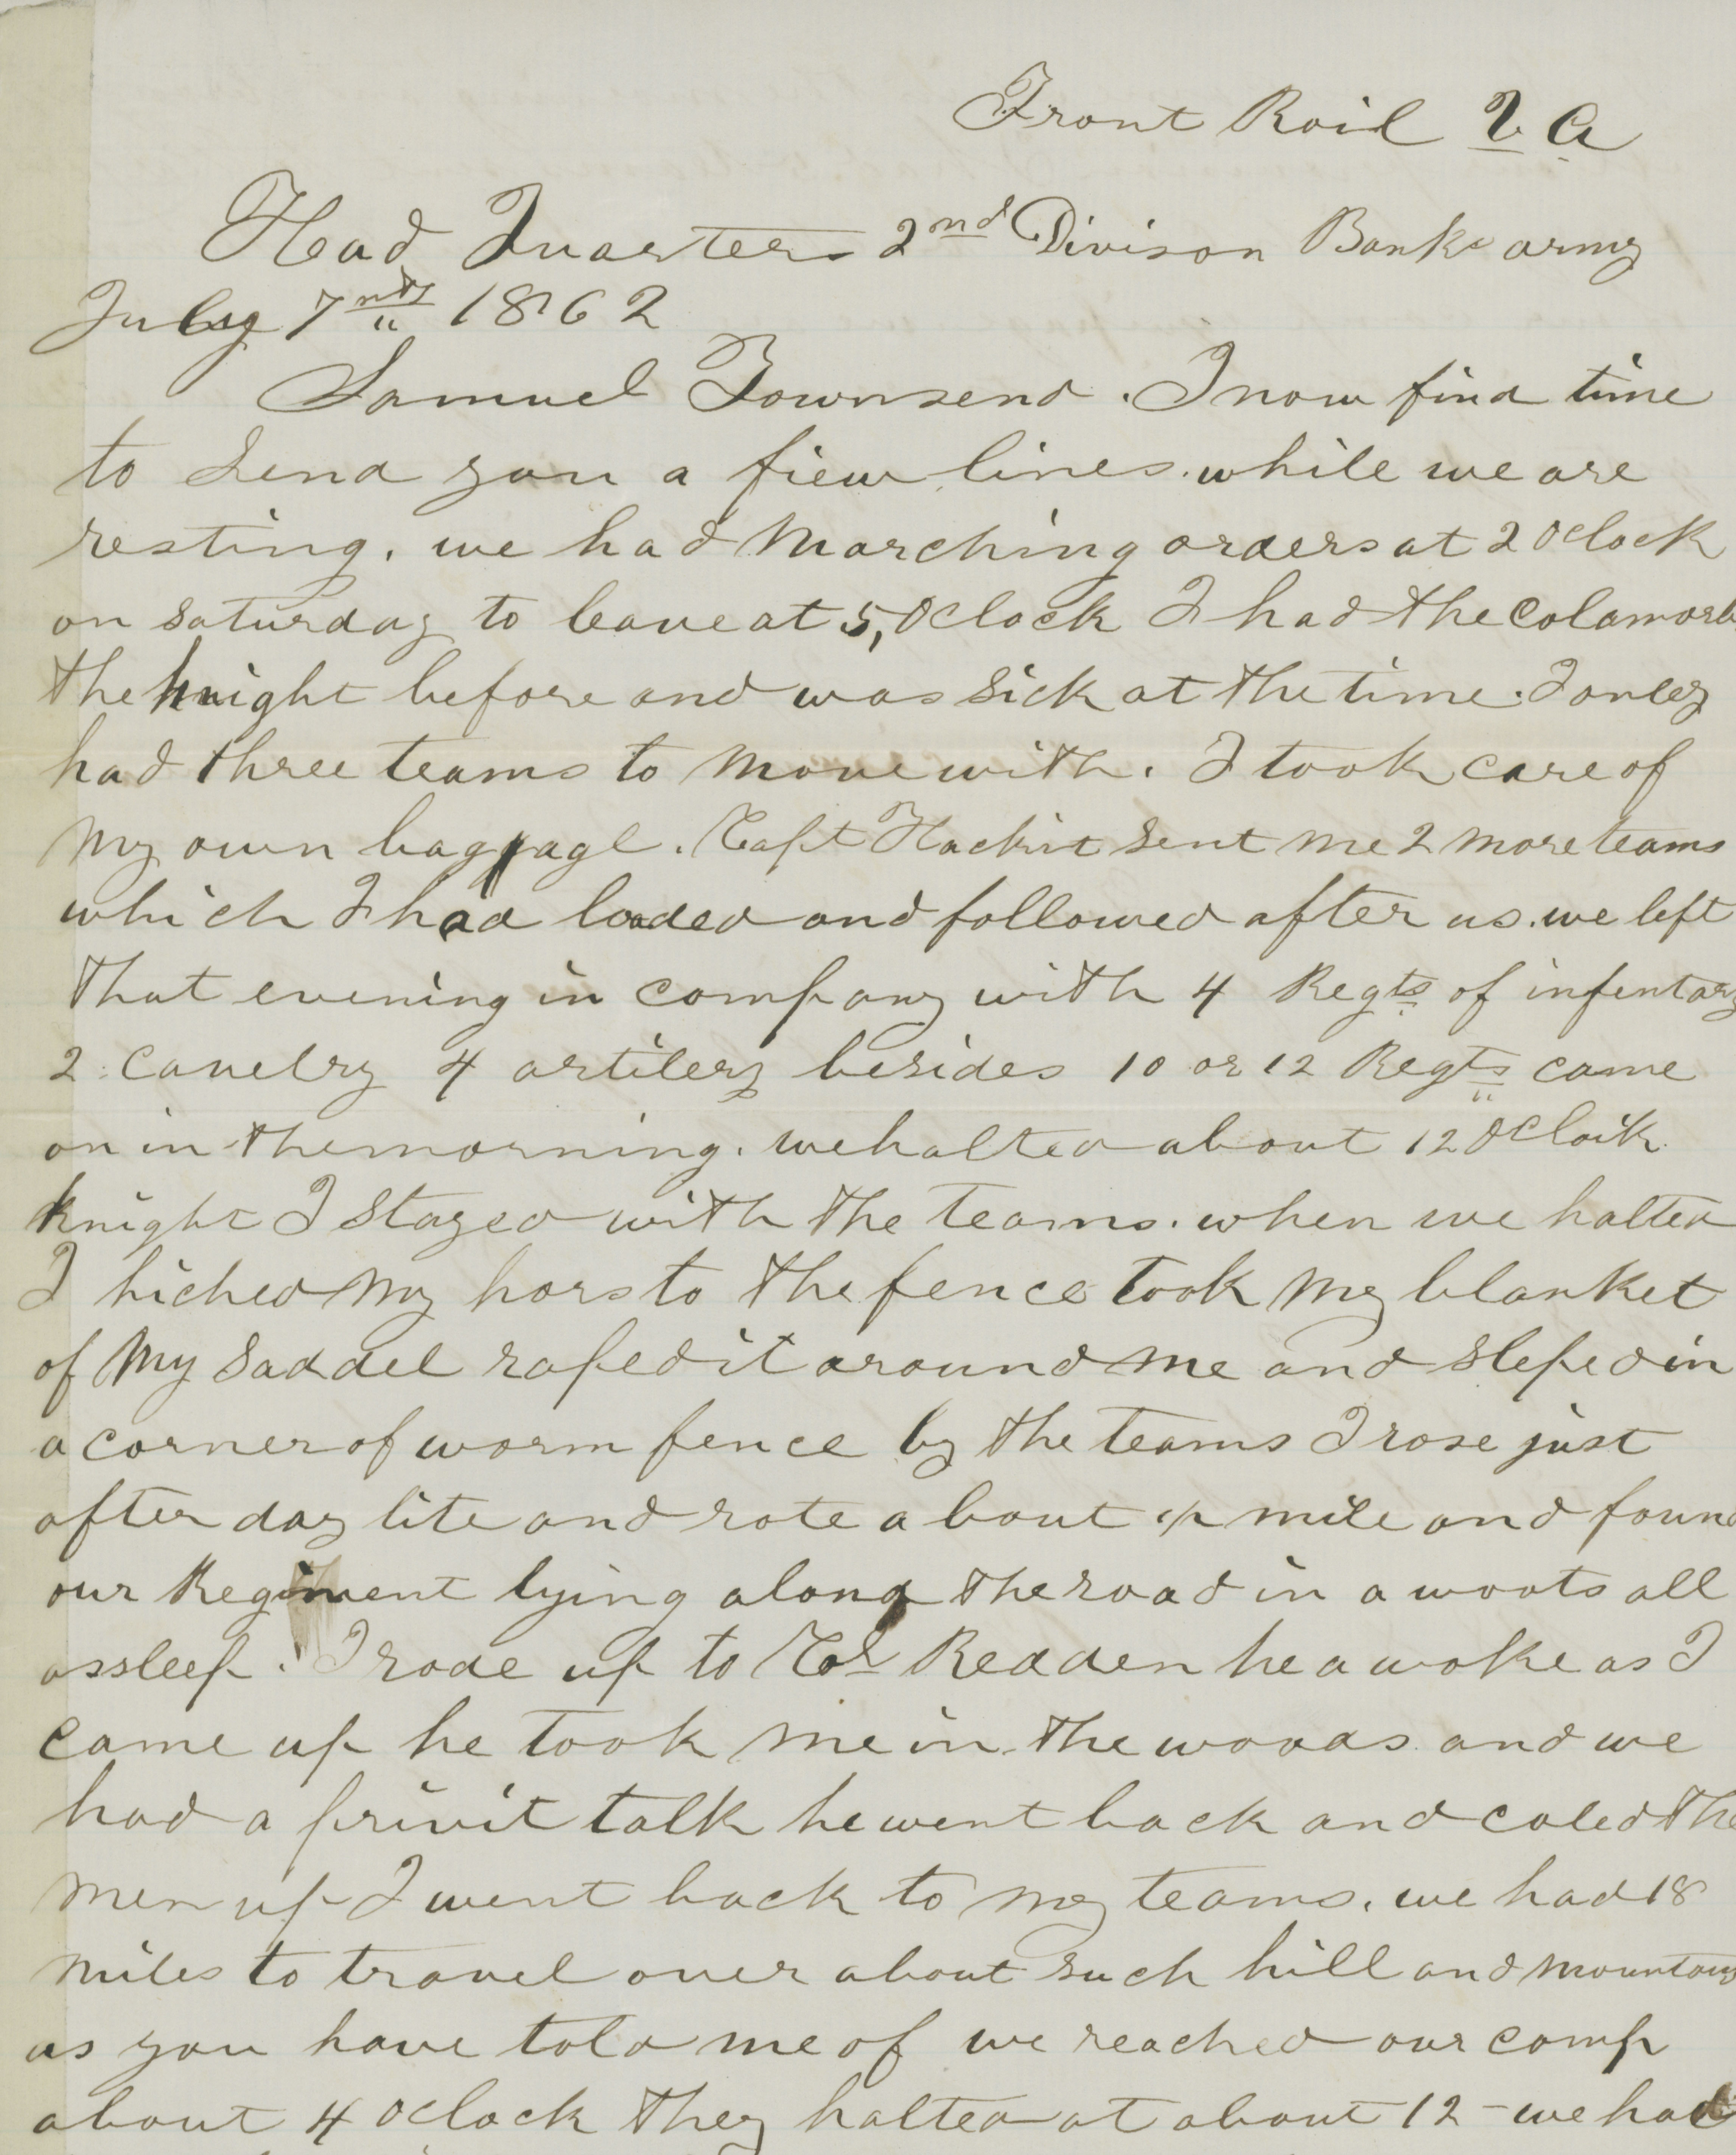 Front Roil Va
Head Quarters 2nd Divison Banks army
July 7th 1862
Samuel Townsend. I now find time
to send you a fiew lines. while we are
resting. we had marching orders at 2 oclock
on saturday to leave at 5, Oclock I had the Colamorb
the knight before and was sick at the time. I only
had three teams to move with. I took care of
my own baggage. Capt Hackit sent me 2 more teams
which I had loaded and followed after us. we left
that evening in company with 4 Regts of infentary
2 Cavelry 4 artilery besides 10 or 12 Regts came
on in the morning. we halted about 12 Oclock
knight I stayed with the teams. when we halted
I hiched my hors to the fence took my blanket
of my saddel raped it around me and sleped in
a corner of worm fence by the teams I rose just
after day lite and rote a bout a mile and found
our Regiment lying along the road in a woots all
assleep. I rode up to Col Redden he awoke as I
came up he took me in the woods and we
had a privit talk he went back and caled the
men up I went back to my teams. we had 18
miles to travel over about such hill and mountains
as you have told me of we reached our camp
about 4 oclock they halted at about 12 - we had